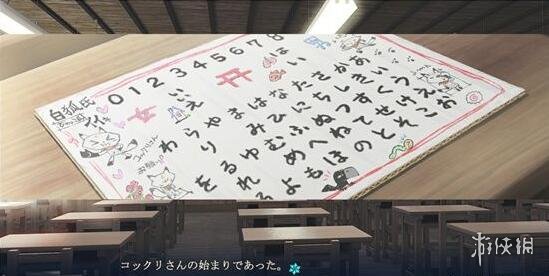 0 1 2 3 4 5 6 7 8
はい
いいえ
女
男
白狐氏
わらやまはなたさかあ
りみひにちしきい
をるゆむふぬつすくう
れめへねてせけえ
ろよもほのとそこお
コックリさんの始まりであった。
游侠网